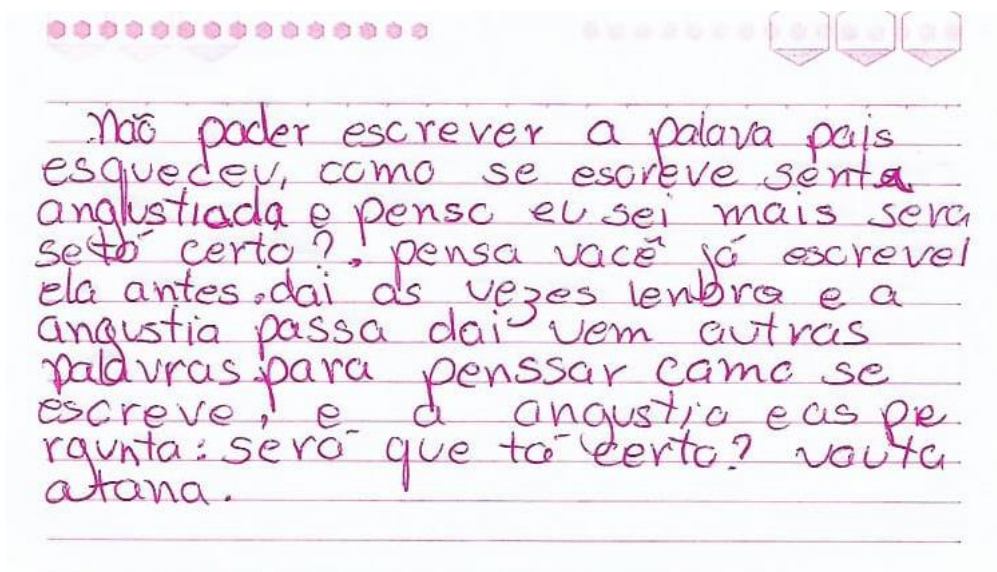 Não poder escrever a palava pais
esquedeu, como se escreve senta
anglustiada e penso eu sei mais sera
setó certo?. pensa vacê já escrevel
ela antes.dai as vezes lenbra e a
angustia passa dai vem outras
palavras.para penssar camo se
escreve, e a angustia e as pe
rgunta: será que tá certo? vauta
atana.